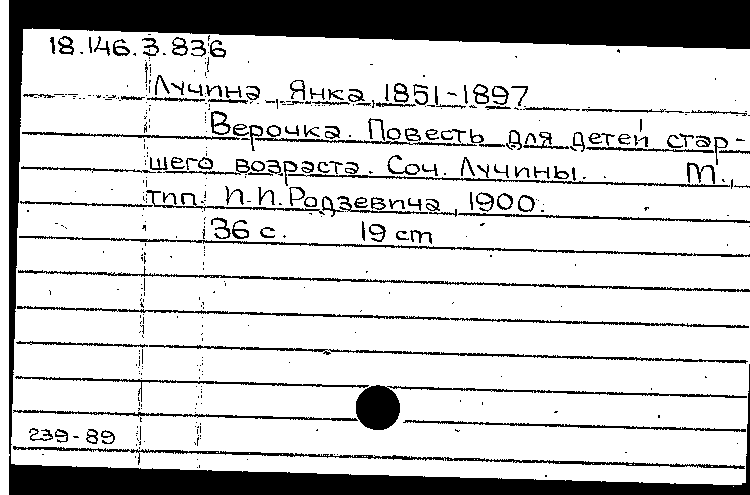 18.146.3.836
Лучина, Янка, 1851-1897
Верочка. Повесть для детей стар-
шего возраста. Соч. Лучины. М.,
тип. И.И.Родзевича, 1900.
36 с. 19 cm
239-89